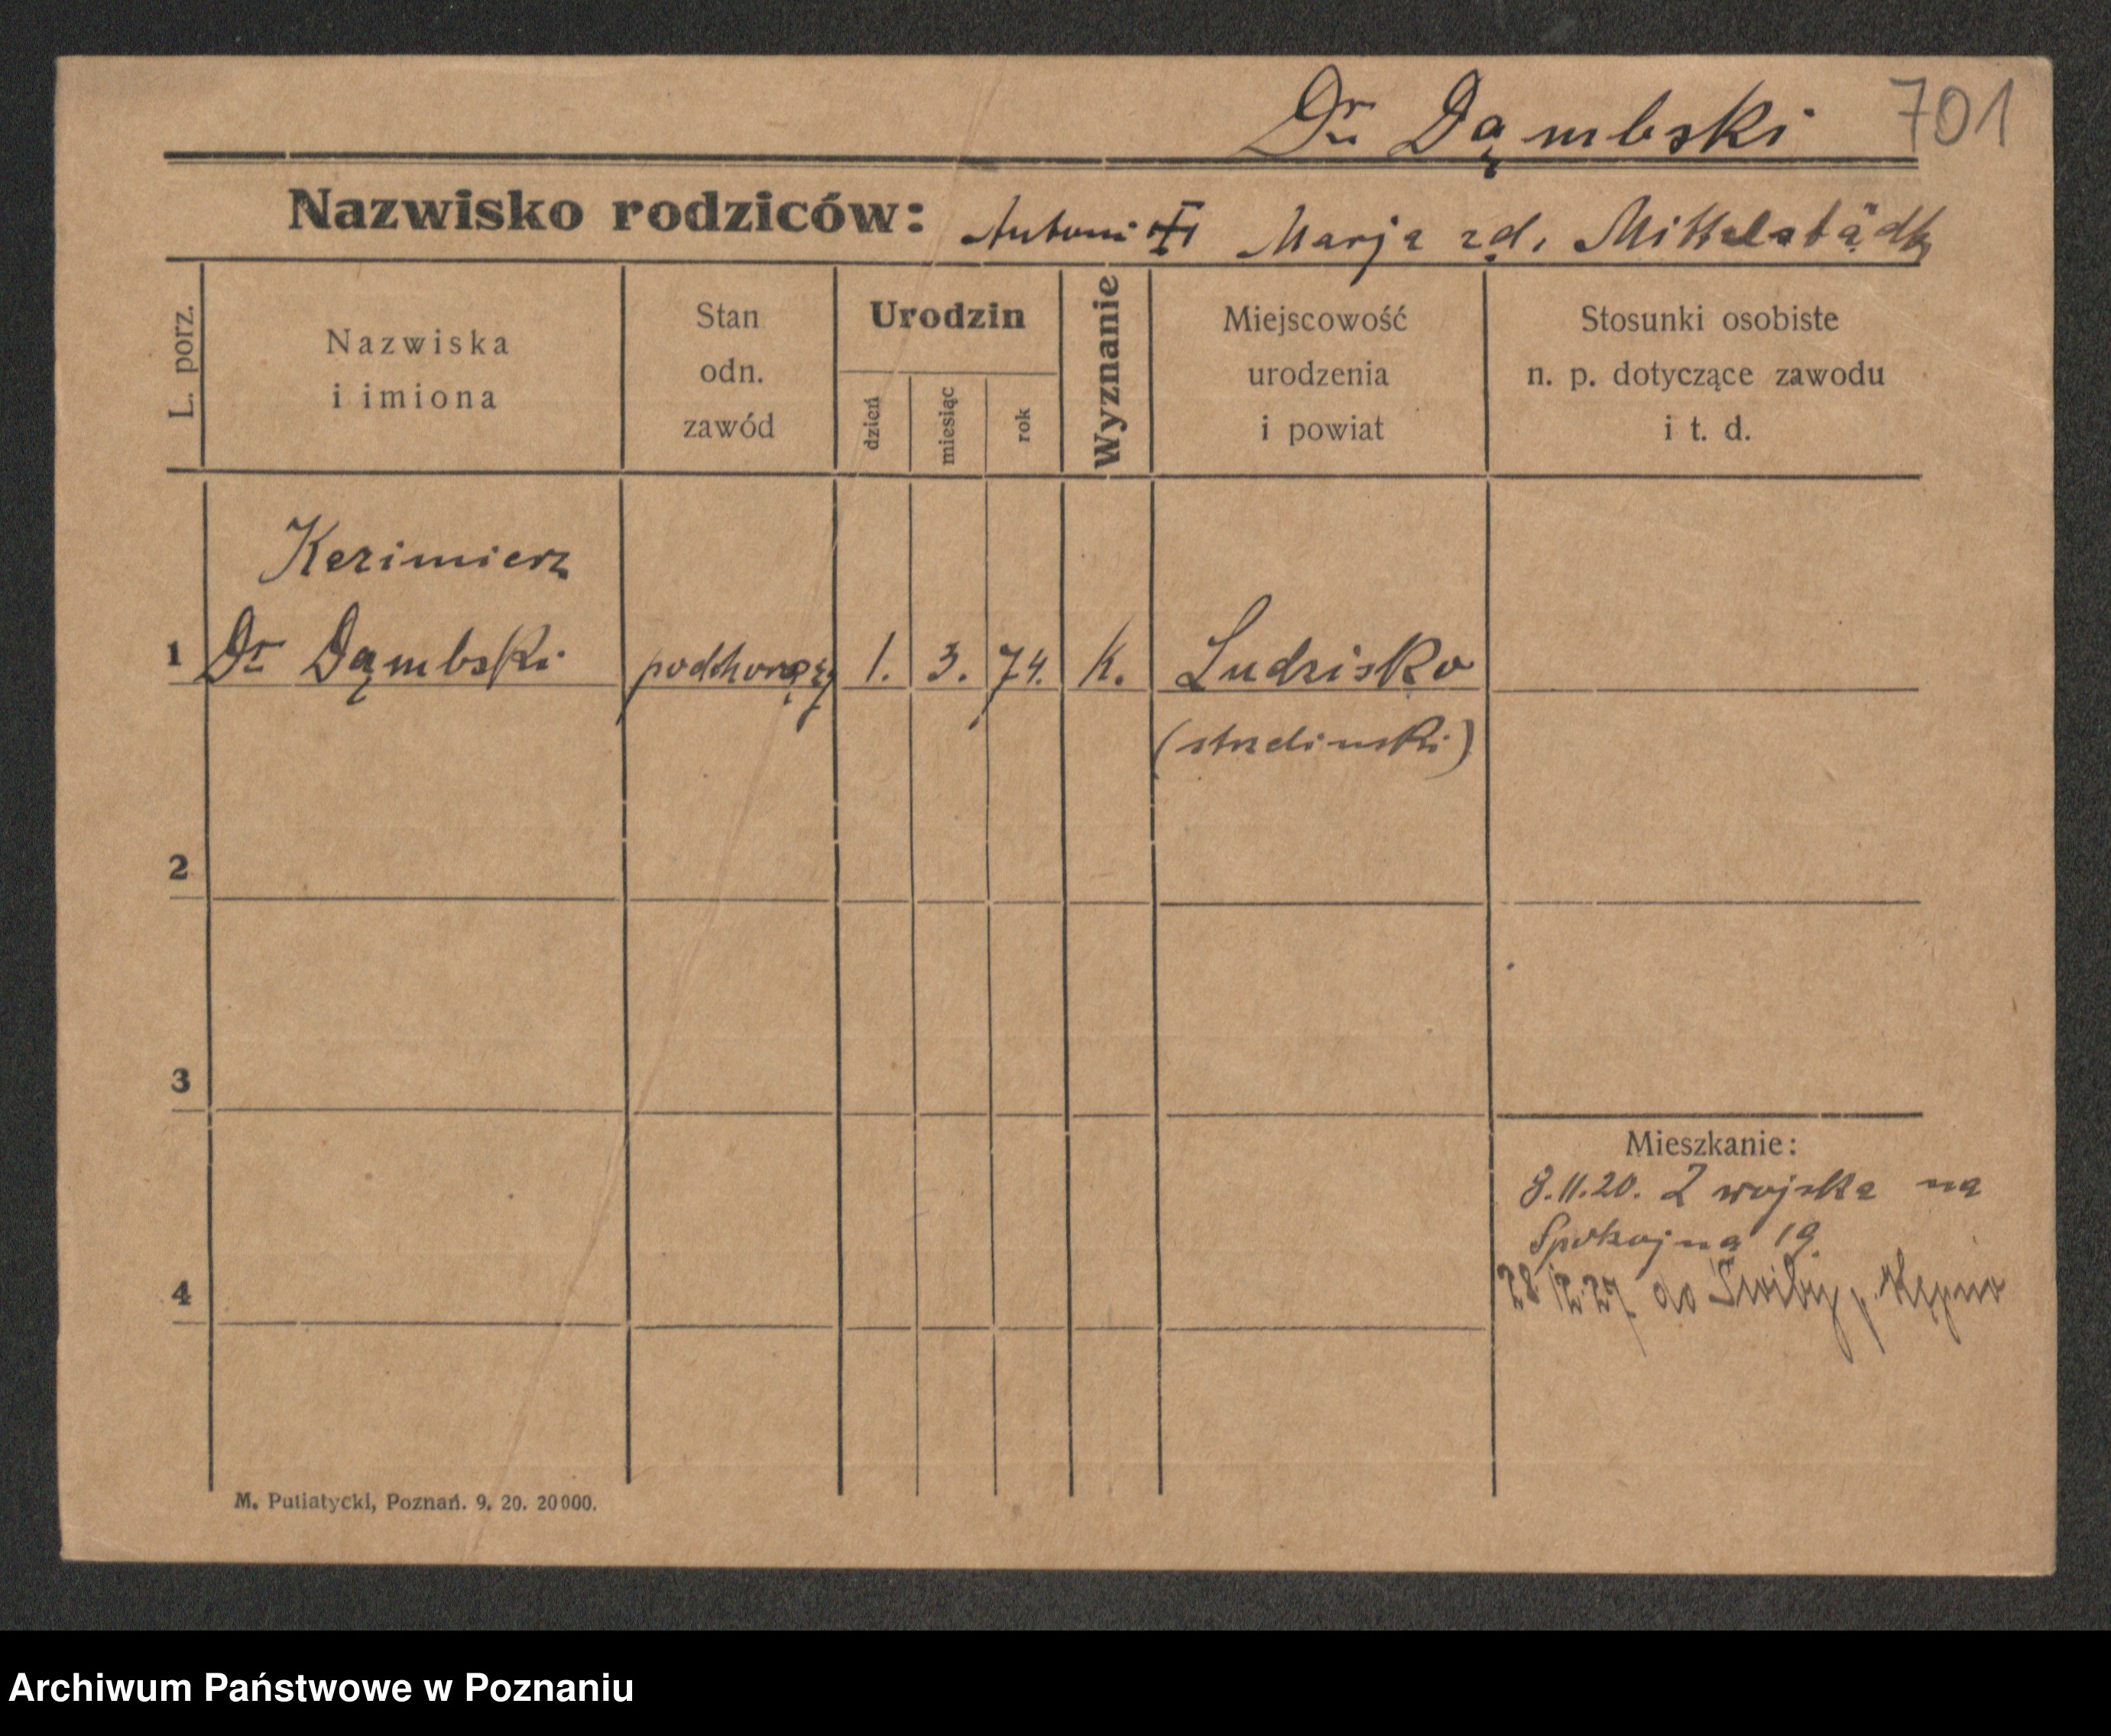 Dr. Dąmbski 701
Nazwisko rodziców: Antoni Marja zd. Mittelstädt
L. porz.
Nazwiska
i imiona
Stan
odn.
zawód
Urodzin
dzień
miesiąc
rok
Wyznanie
Miejscowość
urodzenia
i powiat
Stosunki osobiste
n. p. dotyczące zawodu
i t. d.
Kazimierz
1 Dr Dąmbski podchorąży 1. 3. 74. k. Ludzisko
(strzeliński)
2
3
Mieszkanie:
8.11.20. Z wojska na
Spokojna 19.
4
28 12.27 do Świby p. Kępno
M. Putiatycki, Poznań. 9. 20. 20000.
Archiwum Państwowe w Poznaniu